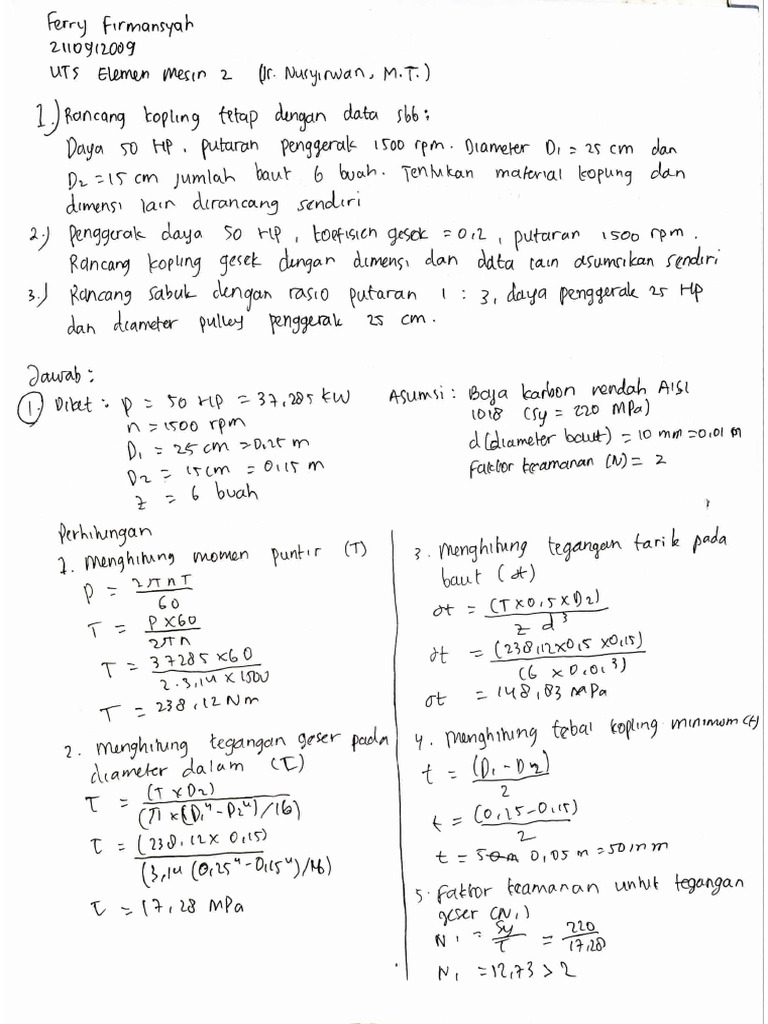 Ferry Firmansyah
2110912009
UTS Elemen Mesin 2 (Ir. Nusyirwan, M.T.)
1.) Rancang kopling tetap dengan data sbb:
Daya 50 HP, putaran penggerak 1500 rpm. Diameter D1 = 25 cm dan
D2 = 15 cm jumlah baut 6 buah. Tentukan material kopling dan
dimensi lain dirancang sendiri
2.) Penggerak daya 50 HP, koefisien gesek = 0,2, putaran 1500 rpm.
Rancang kopling gesek dengan dimensi dan data lain asumsikan sendiri
3.) Rancang sabuk dengan rasio putaran 1 : 3, daya penggerak 25 HP
dan diameter pulley penggerak 25 cm.
Jawab:
1. Diket: P = 50 HP = 37,285 kW
n = 1500 rpm
D1 = 25 cm = 0,25 m
D2 = 15 cm = 0,15 m
z = 6 buah
Asumsi: Baja karbon rendah AISI
1018 (Sy = 220 MPa)
d (diameter baut) = 10 mm = 0,01 m
Faktor keamanan (N) = 2
Perhitungan
1. Menghitung momen puntir (T)
P = 2πnT / 60
T = P×60 / 2πn
T = 37285×60 / 2.3,14×1500
T = 238,12 Nm
2. Menghitung tegangan geser pada
diameter dalam (τ)
τ = (T×D2) / (π×(D1⁴-D2⁴)/16)
τ = (238,12×0,15) / (3,14(0,25⁴-0,15⁴)/16)
τ = 17,28 MPa
3. Menghitung tegangan tarik pada
baut (σt)
σt = (T×0,5×D2) / z d³
σt = (238,12×0,5×0,15) / (6×0,01³)
σt = 148,83 MPa
4. Menghitung tebal kopling minimum (t)
t = (D1-D2) / 2
t = (0,25-0,15) / 2
t = 0,05 m = 50 mm
5. Faktor keamanan untuk tegangan
geser (N1)
N1 = Sy / τ = 220 / 17,28
N1 = 12,73 > 2